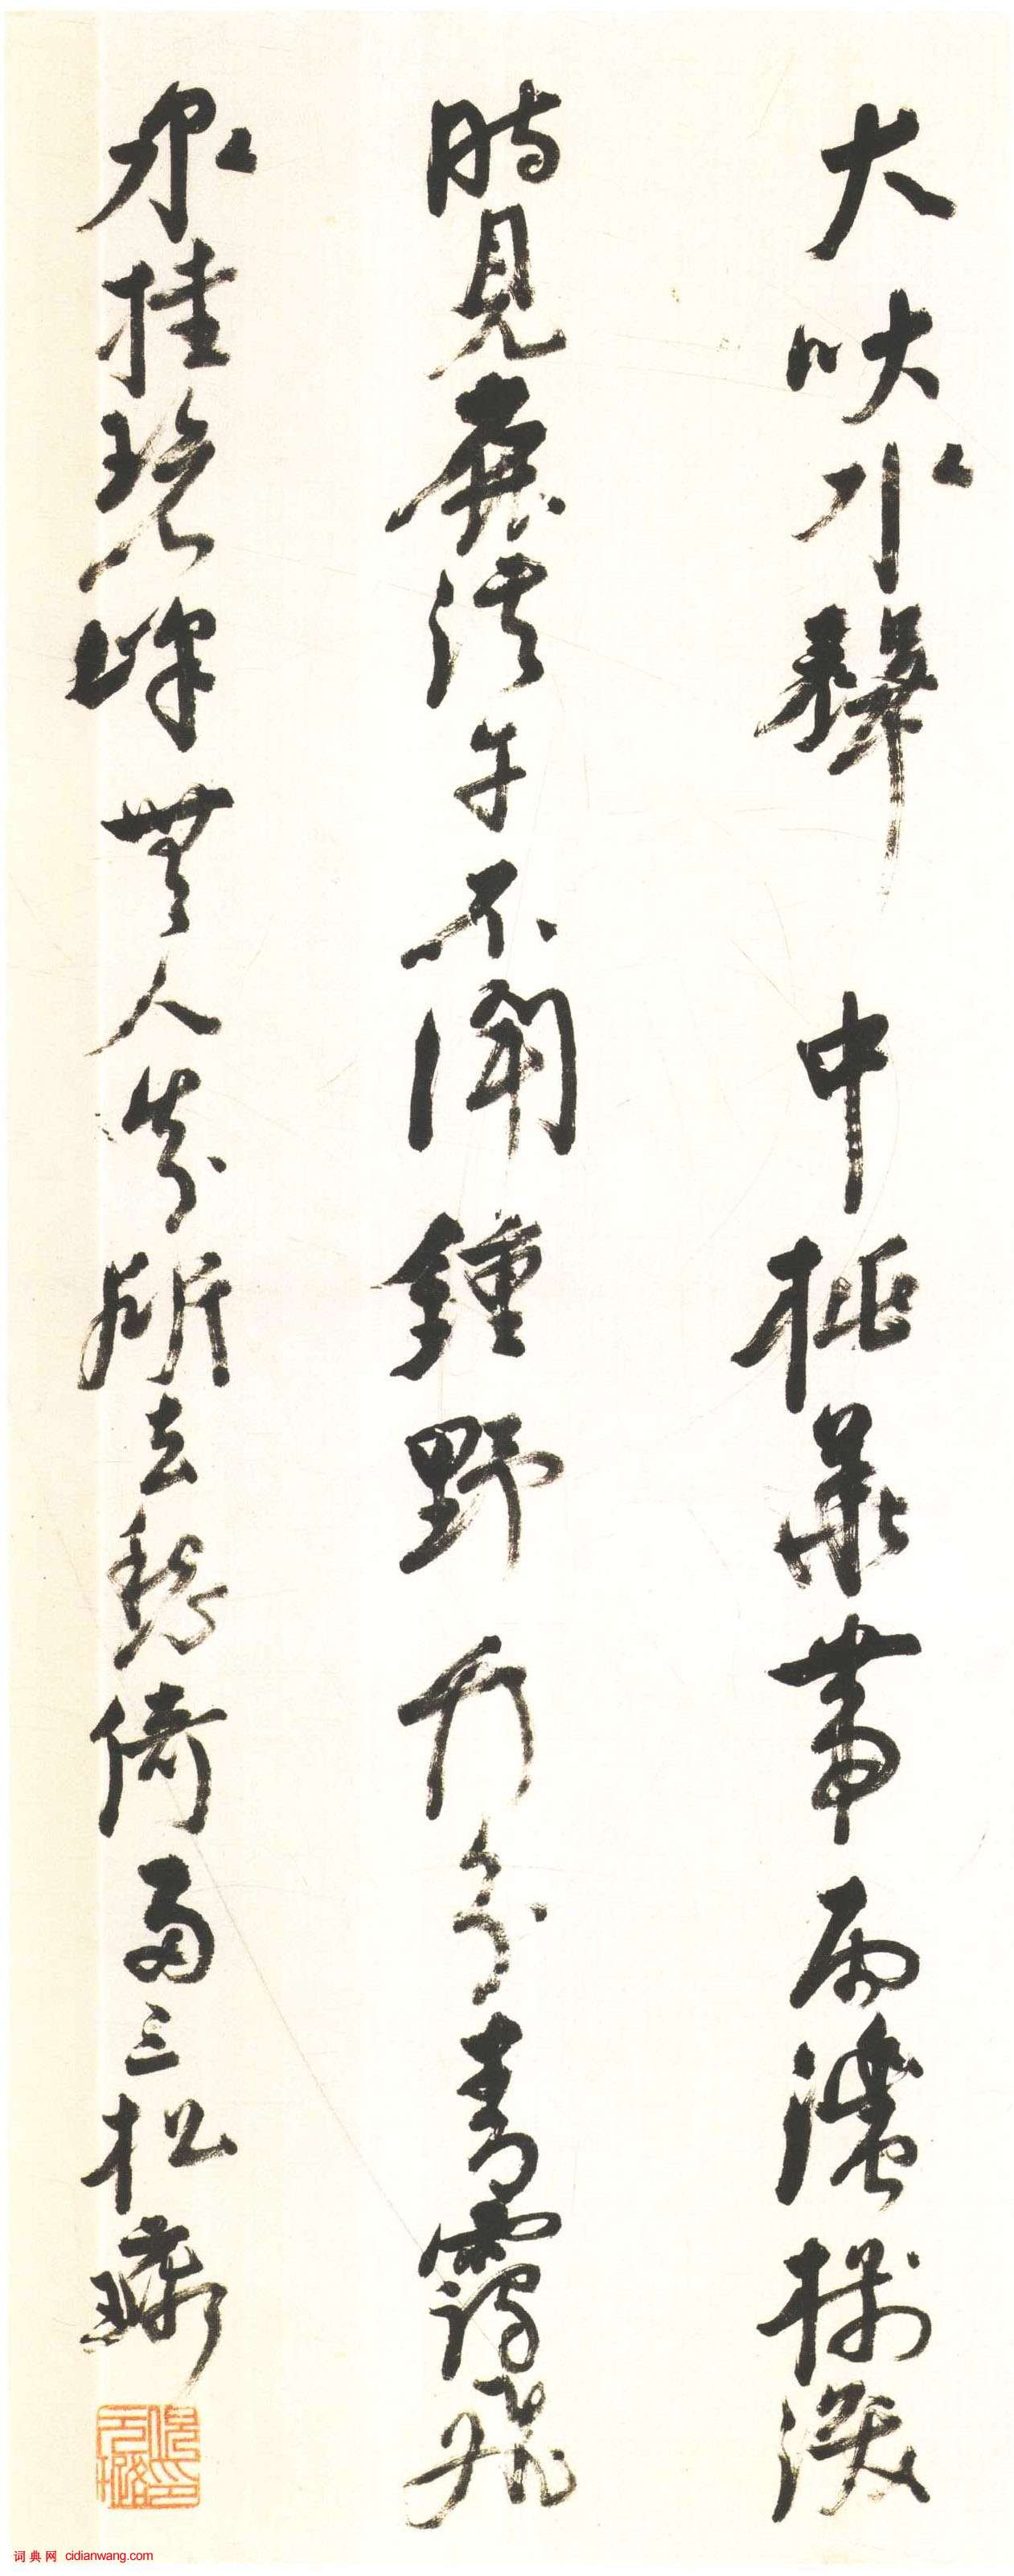 犬吠水聲中桃華帶雨濃樹深
時見鹿溪午不聞鍾野竹分青靄飛
泉挂碧峰無人知所去愁倚兩三松
词典网 cidianwang.com